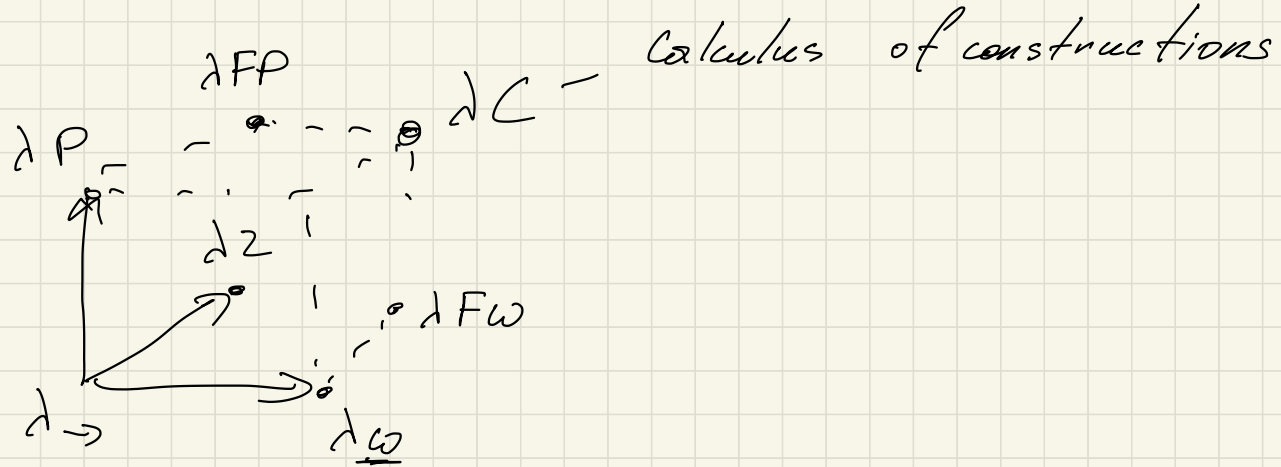 Calculus of constructions
λFP
λC
λP
λ2
λFω
λ→
λω̲